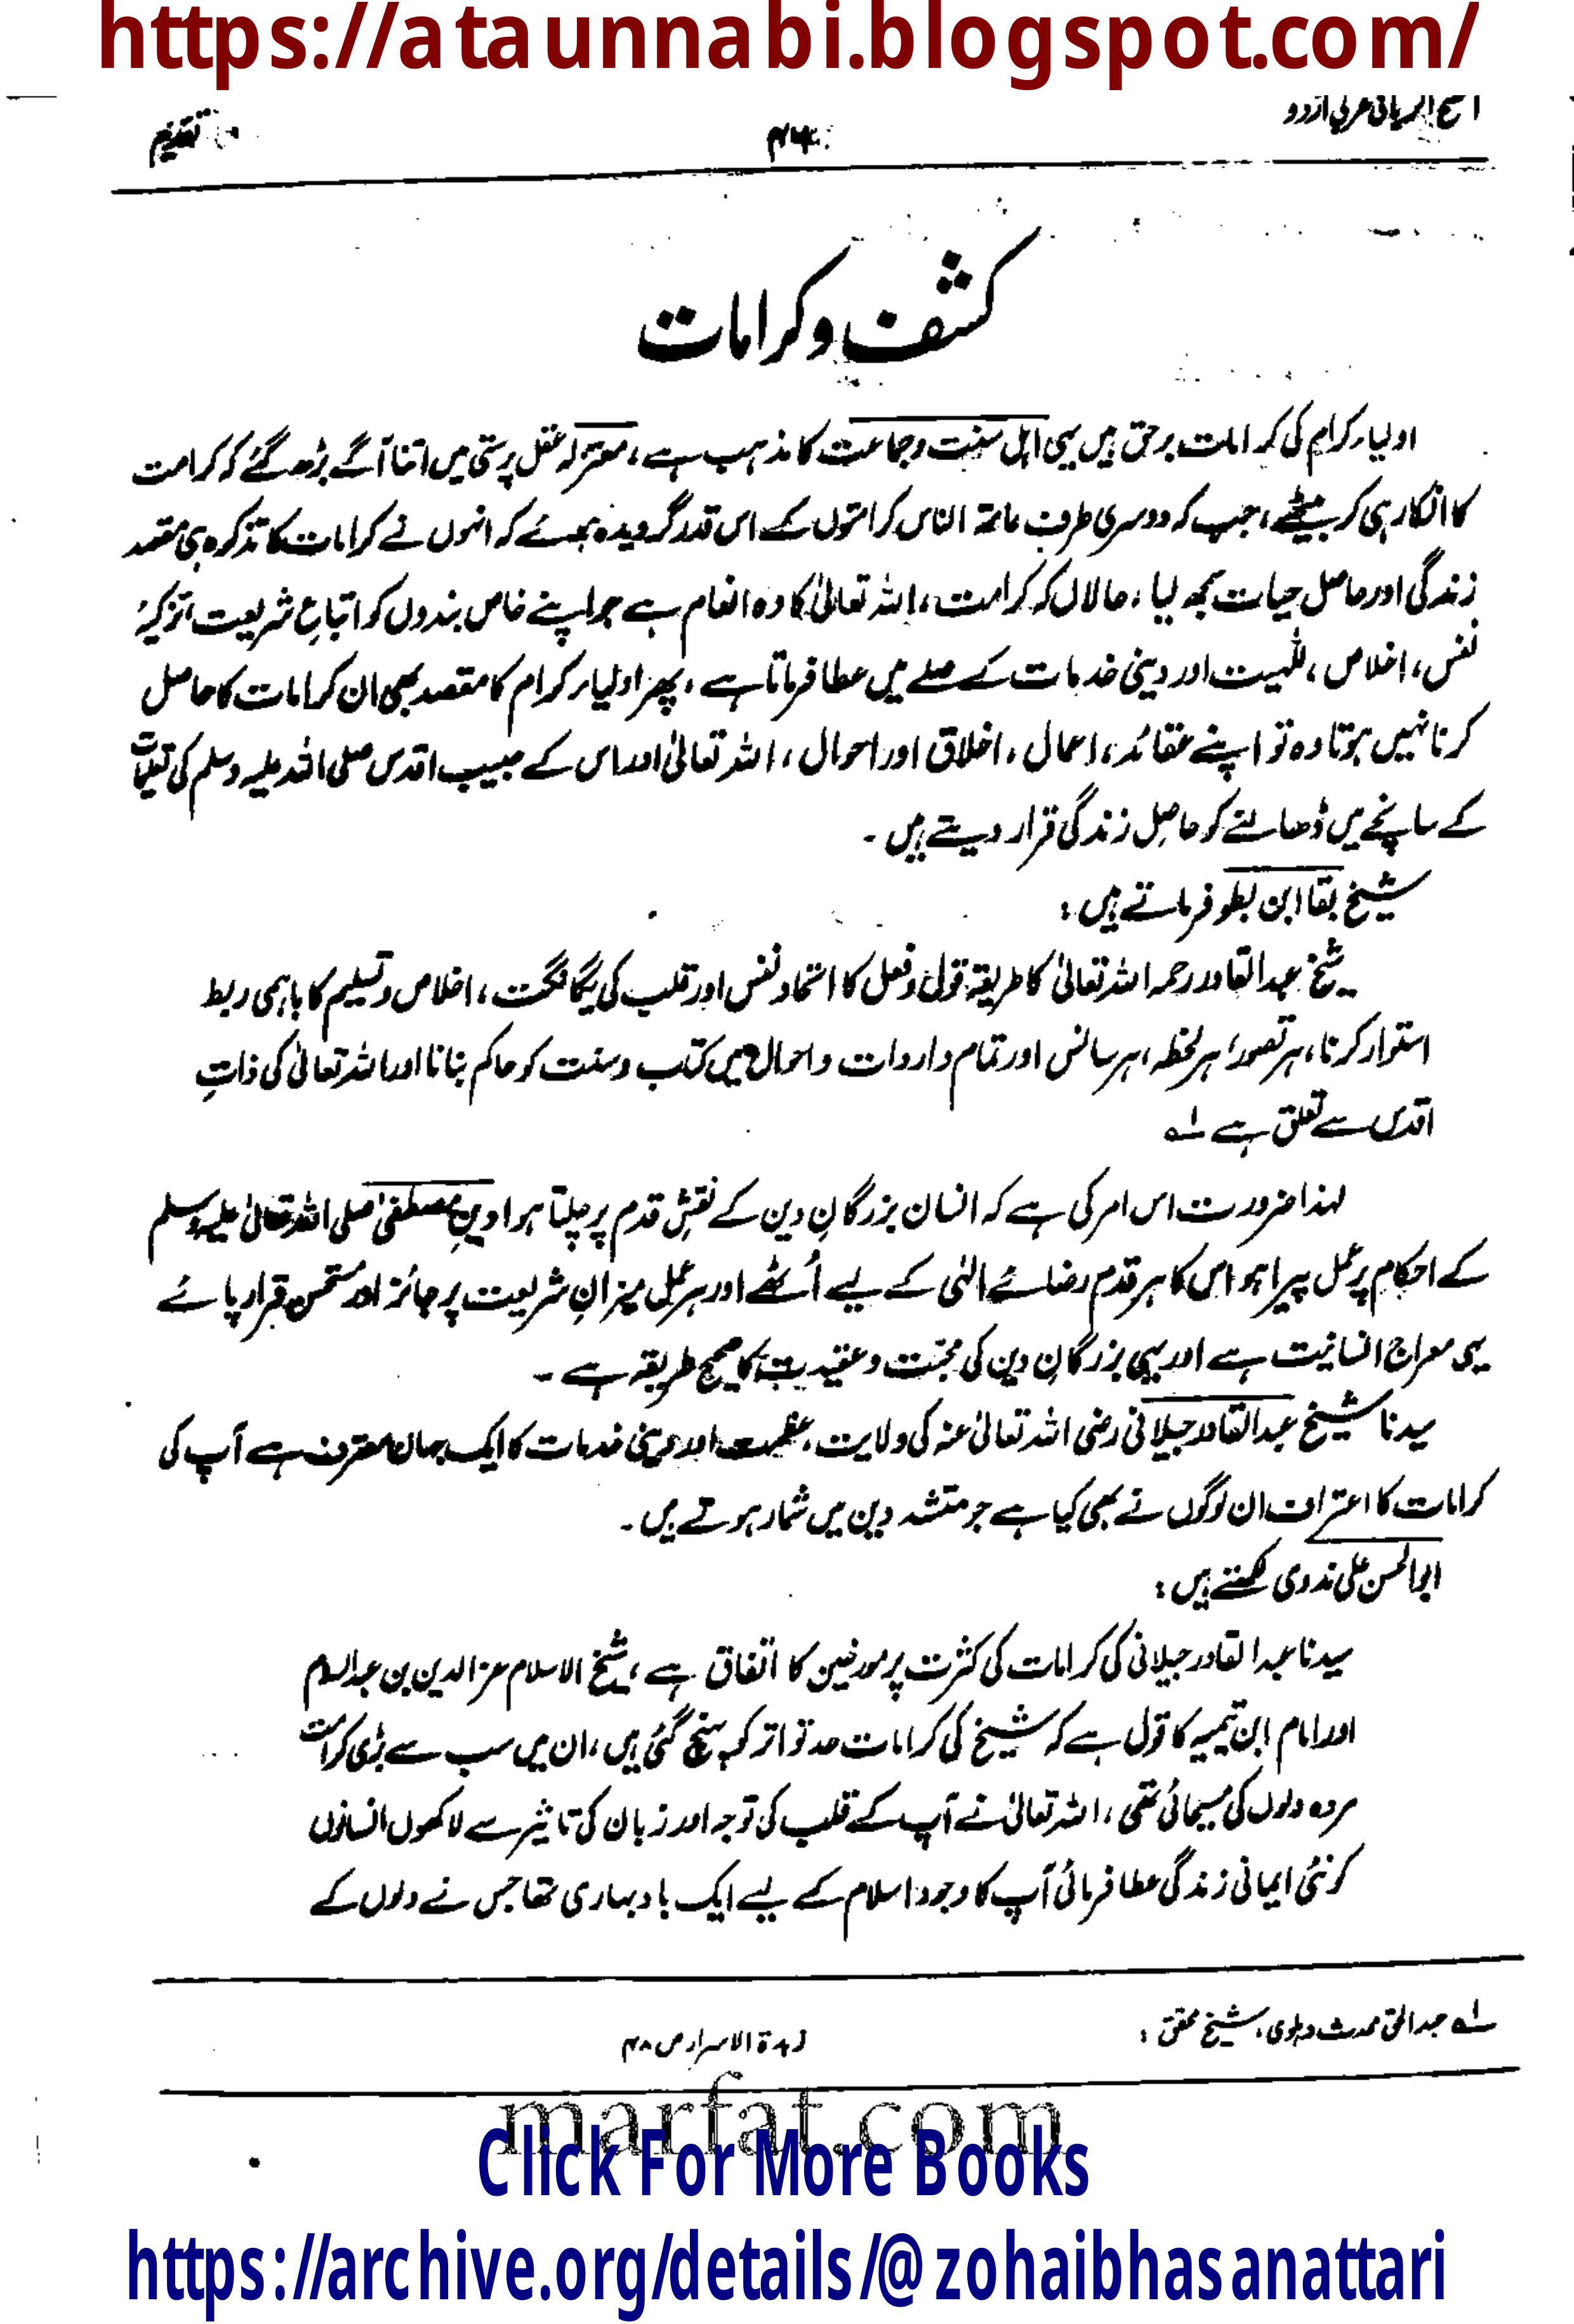 https://ataunnabi.blogspot.com/
الفتح الربانی عربی اردو
تقدیم
کشف و کرامات
اولیاء کرام کی کرامات برحق ہیں یہی اہل سنت و جماعت کا مذہب ہے، معتزلہ عقل پرستی میں اتنا آگے بڑھ گئے کہ کرامت
کا انکار ہی کر بیٹھے، جب کہ دوسری طرف عامۃ الناس کرامتوں کے اس قدر گرویدہ ہوئے کہ انہوں نے کرامات کا تذکرہ ہی مقصد
زندگی اور حاصل حیات سمجھ لیا، حالاں کہ کرامت، اللہ تعالیٰ کا وہ انعام ہے جو اپنے خاص بندوں کو اتباعِ شریعت، تزکیۂ
نفس، اخلاص، للہیت اور دینی خدمات کے صلے میں عطا فرماتا ہے، پھر اولیاء کرام کا مقصد بھی ان کرامات کا حاصل
کرنا نہیں ہوتا وہ تو اپنے عقائد، اعمال، اخلاق اور احوال، اللہ تعالیٰ اور اس کے حبیب اقدس صلی اللہ علیہ وسلم کی تعلیمات
کے سانچے میں ڈھالنے کو حاصلِ زندگی قرار دیتے ہیں۔
شیخ بقا ابن بطو فرماتے ہیں:
شیخ عبدالقادر رحمہ اللہ تعالیٰ کا طریقہ قول و فعل کا اتحاد نفس اور قلب کی یگانگت، اخلاص و تسلیم کا باہمی ربط
استوار کرنا، ہر تصور، ہر لحظہ، ہر سانس اور تمام واردات و احوال میں کتاب و سنت کو حاکم بنانا اور اللہ تعالیٰ کی ذاتِ
اقدس سے تعلق ہے ۱؎
لہذا ضرورت اس امر کی ہے کہ انسان بزرگانِ دین کے نقشِ قدم پر چلتا ہوا دینِ مصطفیٰ صلی اللہ تعالیٰ علیہ وسلم
کے احکام پر عمل پیرا ہو اس کا ہر قدم رضائے الٰہی کے لیے اُٹھے اور ہر عمل میزانِ شریعت پر جائز اور مستحسن قرار پائے
یہی معراج انسانیت ہے اور یہی بزرگانِ دین کی محبت و عقیدت کا صحیح طریقہ ہے۔
سیدنا شیخ عبدالقادر جیلانی رضی اللہ تعالیٰ عنہ کی ولایت، عظمت اور دینی خدمات کا ایک جہان معترف ہے آپ کی
کرامات کا اعتراف ان لوگوں نے بھی کیا ہے جو متشددین میں شمار ہوتے ہیں۔
ابوالحسن علی ندوی لکھتے ہیں:
سیدنا عبدالقادر جیلانی کی کرامات کی کثرت پر مورخین کا اتفاق ہے، شیخ الاسلام عزالدین بن عبدالسلام
اور امام ابن تیمیہ کا قول ہے کہ شیخ کی کرامات حد تواتر کو پہنچ گئی ہیں، ان میں سب سے بڑی کرامت
مردہ دلوں کی مسیحائی تھی، اللہ تعالیٰ نے آپ کے قلب کی توجہ اور زبان کی تاثیر سے لاکھوں انسانوں
کو نئی ایمانی زندگی عطا فرمائی آپ کا وجود اسلام کے لیے ایک باد بہاری تھا جس نے دلوں کے
۱؎ عبدالحق محدث دہلوی، شیخ محقق:
زبدۃ الاسرار ص ۴۸
marfat.com
Click For More Books
https://archive.org/details/@zohaibhasanattari